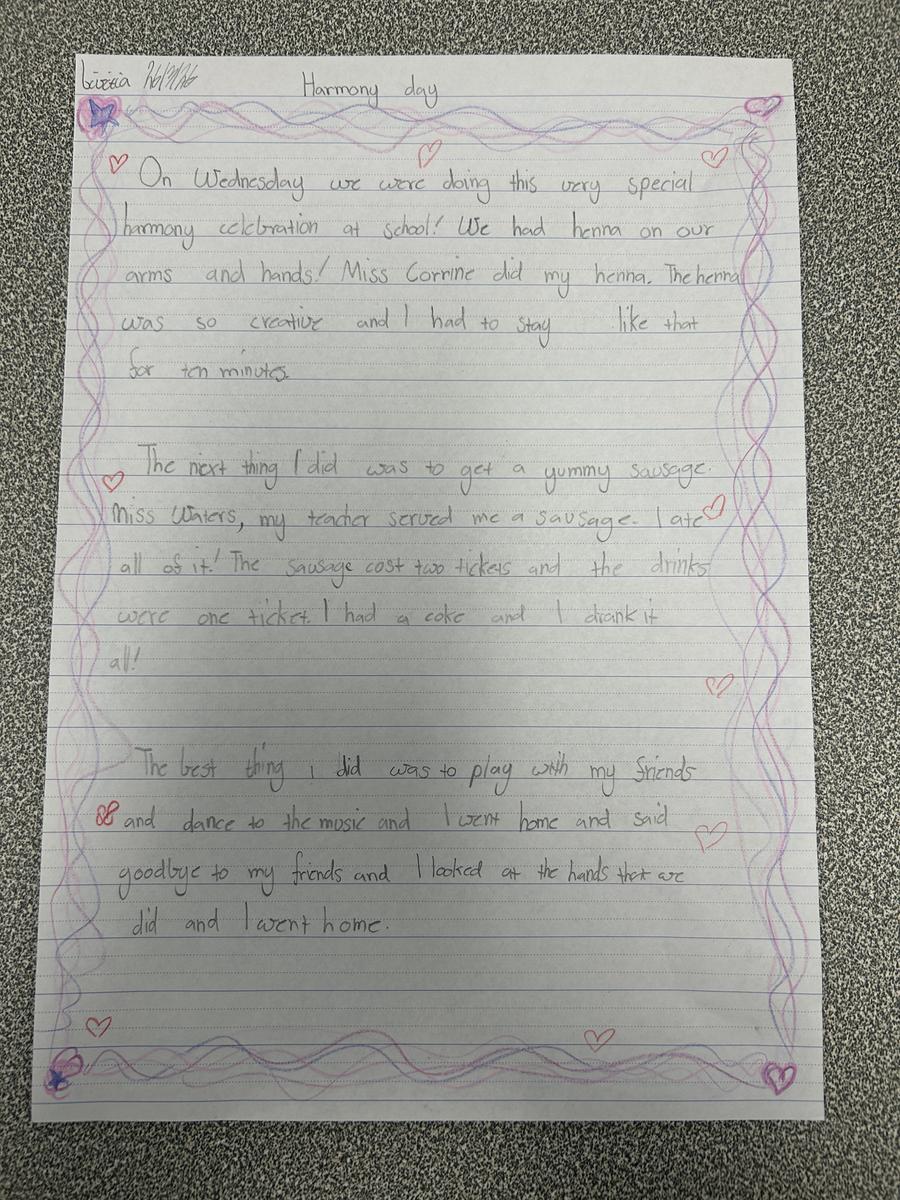 26/3/26
Harmony day
On Wednesday we were doing this very special
harmony celebration at school! We had henna on our
arms and hands! Miss Corrine did my henna. The henna
was so creative and I had to stay like that
for ten minutes.
The next thing I did was to get a yummy sausage.
Miss Waters, my teacher served me a sausage. I ate
all of it! The sausage cost two tickets and the drinks
were one ticket. I had a coke and I drank it
all!
The best thing i did was to play with my friends
and dance to the music and I went home and said
goodbye to my friends and I looked at the hands that we
did and I went home.